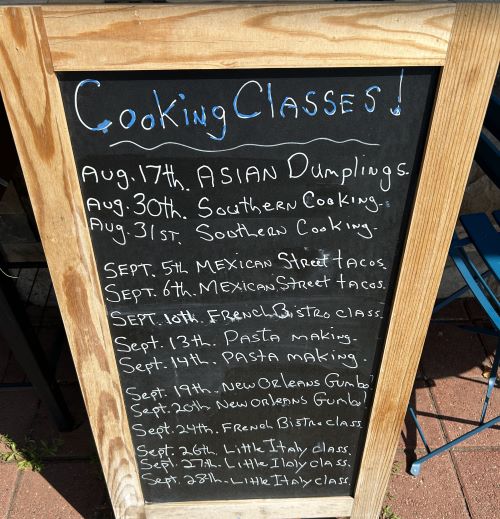 Cooking Classes!
Aug. 17th. Asian Dumplings.
Aug. 30th. Southern Cooking.
Aug. 31st. Southern Cooking.
Sept. 5th Mexican Street tacos.
Sept. 6th. Mexican Street tacos.
Sept. 10th. French Bistro class.
Sept. 13th. Pasta making.
Sept. 14th. Pasta making.
Sept. 19th. New Orleans Gumbo!
Sept. 20th New Orleans Gumbo!
Sept. 24th. French Bistro class.
Sept. 26th. Little Italy class.
Sept. 27th. Little Italy class.
Sept. 28th. Little Italy class.